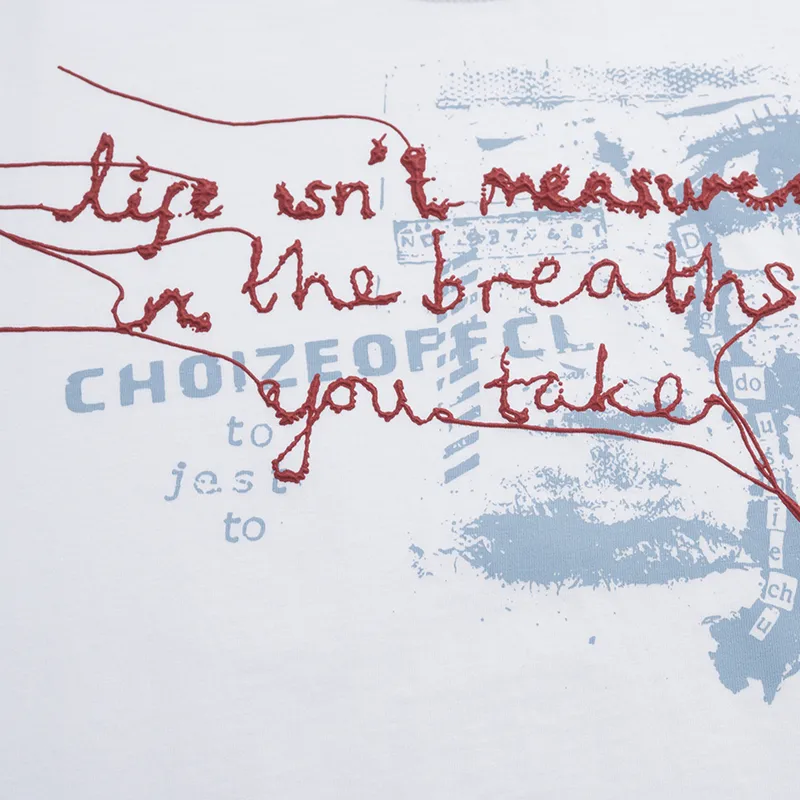 life isn't measure
in the breaths
you take
CHOIZEOFFCL
to
jest
to
do
u
s
i
e
ch
u